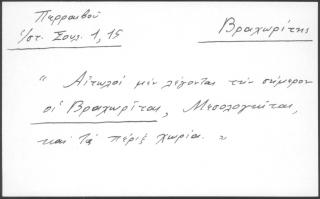 Περραιβοῦ
ἱστ. Σουλ. 1, 15
Βραχωρίτης
" Αἰτωλοὶ μὲν λέγονται τὴν σήμερον
οἱ Βραχωρῖται, Μεσολογγῖται,
καὶ τὰ πέριξ χωρία. "